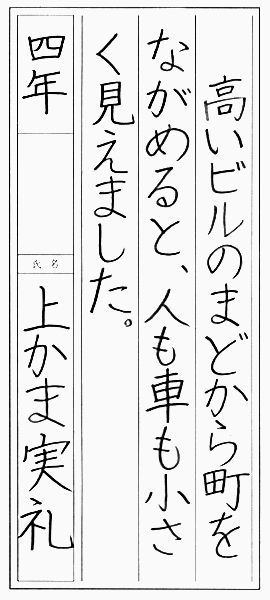 高いビルのまどから町を
ながめると、人も車も小さ
く見えました。
四年
氏名
上かま実礼